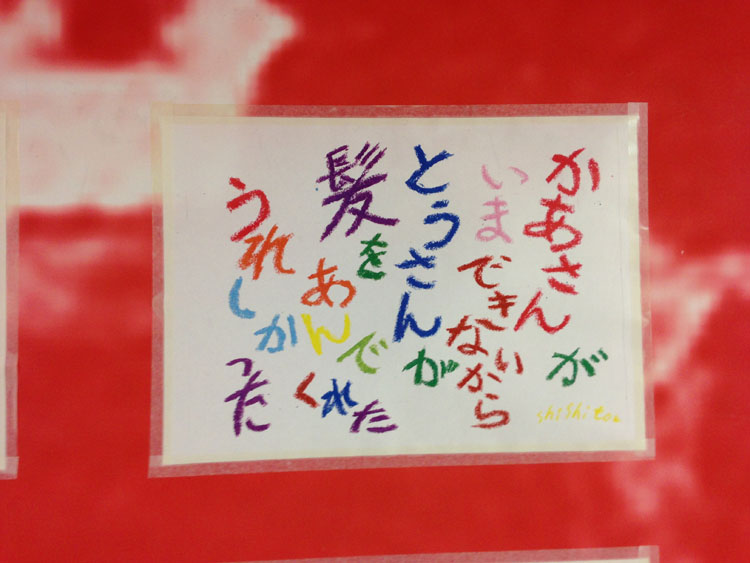 かあさんが
いまできないから
とうさんが
髪をあんでくれた
うれしかった
shishitou